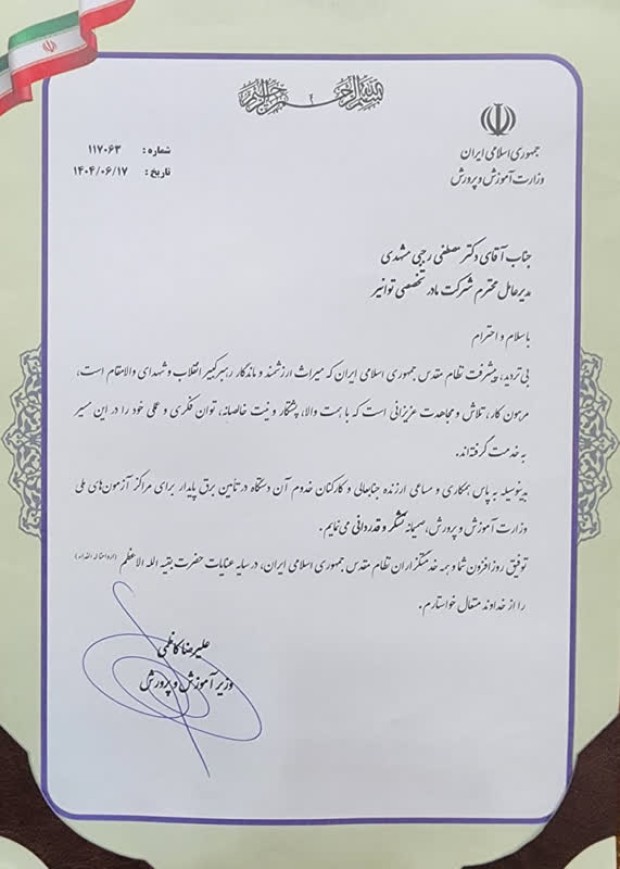 بسم الله الرحمن الرحیم
جمهوری اسلامی ایران
وزارت آموزش و پرورش
شماره : ۱۱۷۰۶۳
تاریخ : ۱۴۰۴/۰۶/۱۷
جناب آقای دکتر مصطفی رجبی مشهدی
مدیرعامل محترم شرکت مادر تخصصی توانیر
با سلام و احترام
بی‌تردید، پیشرفت نظام مقدس جمهوری اسلامی ایران که میراث ارزشمند و ماندگار رهبر کبیر انقلاب و شهدای والامقام است،
مرهون کار، تلاش و مجاهدت عزیزانی است که با همت والا، پشتکار و نیت خالصانه، توان فکری و عملی خود را در این مسیر
به خدمت گرفته‌اند.
بدینوسیله به پاس همکاری و مساعی ارزنده جنابعالی و کارکنان خدوم آن دستگاه در تأمین برق پایدار برای مراکز آزمون‌های ملی
وزارت آموزش و پرورش، صمیمانه تشکر و قدردانی می‌نمایم.
توفیق روزافزون شما و همه خدمتگزاران نظام مقدس جمهوری اسلامی ایران، در سایه عنایات حضرت بقیه الله الاعظم (ارواحنا له الفداء)
را از خداوند متعال خواستارم.
علیرضا کاظمی
وزیر آموزش و پرورش